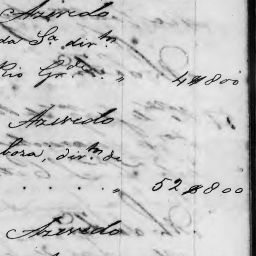 Azevedo
da Sª. dirtos
Rio Gr.de . . " 4$800
Azevedo
boza, dirtos de
. . . . . " 52$800
Azevedo